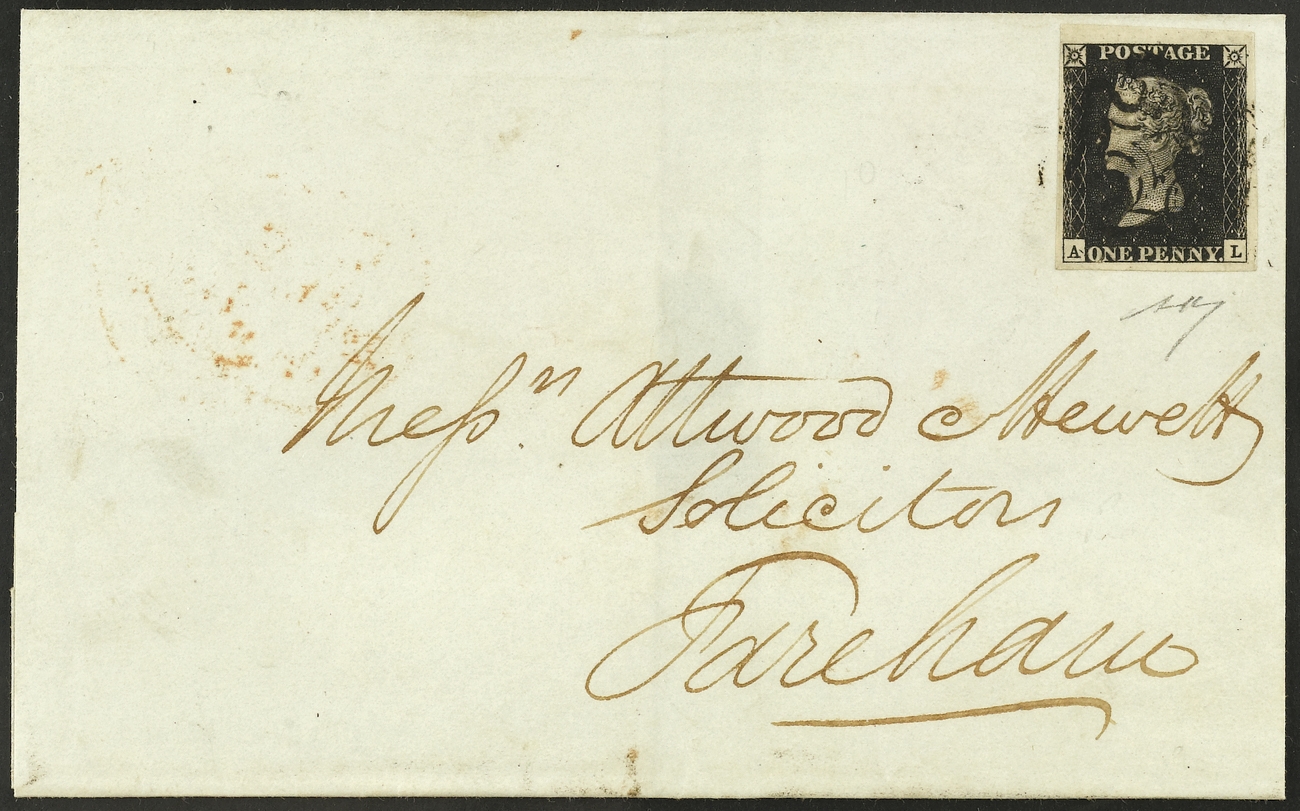 POSTAGE
A ONE PENNY. L
Messrs. Attwood & Hewett
Solicitors
Fareham